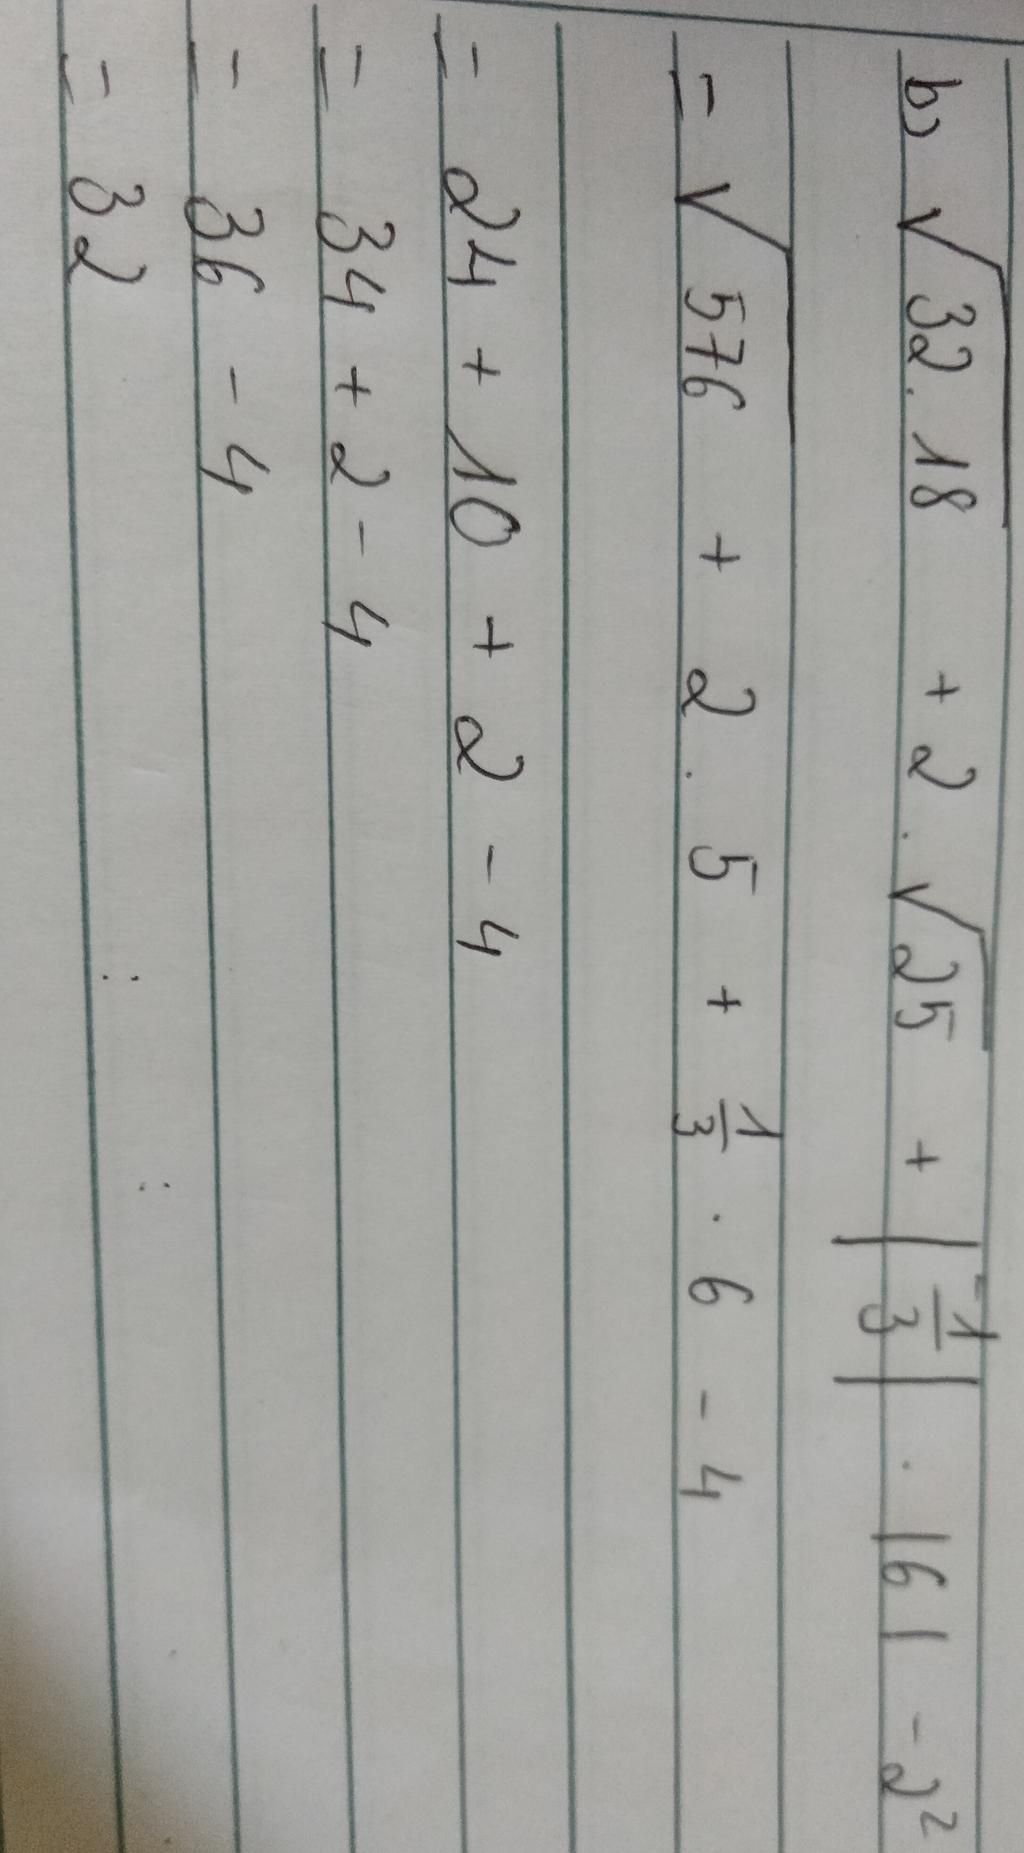 b) √32.18 + 2.√25 + |-1/3| . |6| - 2²
= √576 + 2.5 + 1/3 . 6 - 4
= 24 + 10 + 2 - 4
= 34 + 2 - 4
= 36 - 4
= 32